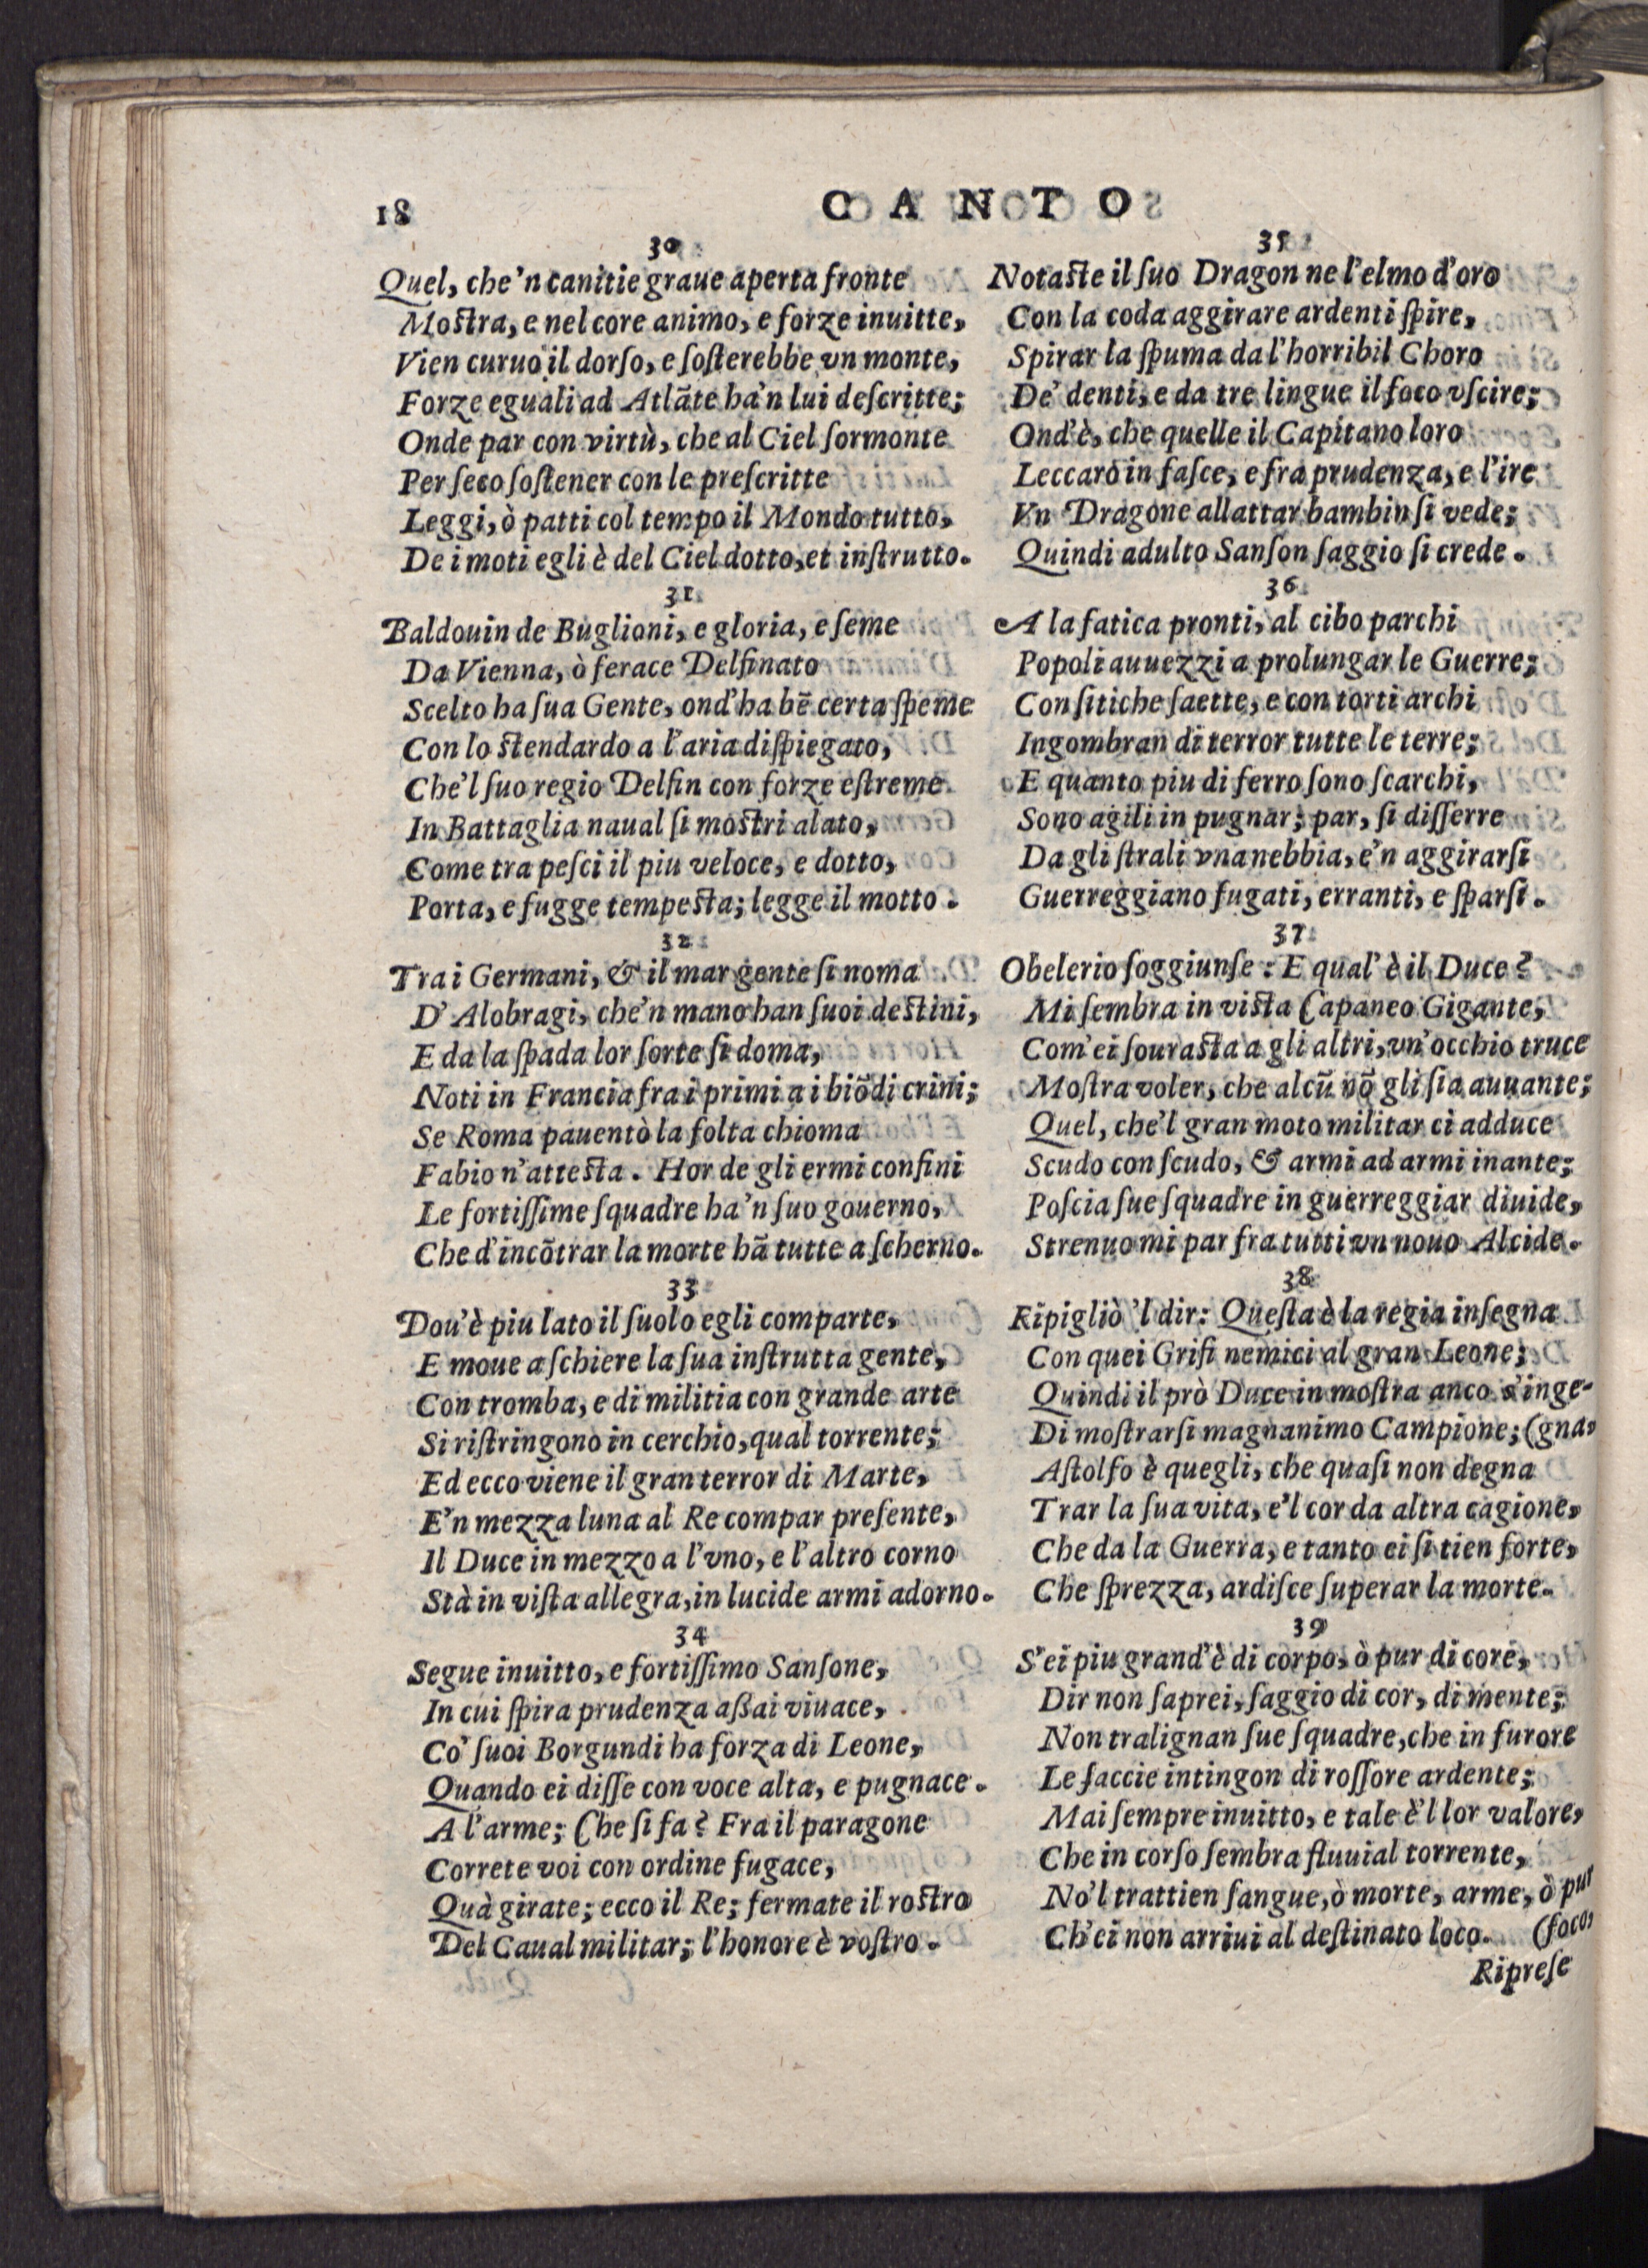 18
CANTO
30
Quel, che'n canitie graue aperta fronte
Mostra, e nel core animo, e forze inuitte,
Vien curuo il dorſo, e ſosterebbe vn monte,
Forze eguali ad Atlãte ha'n lui deſcritte;
Onde par con virtù, che al Ciel ſormonte
Per ſeco ſostener con le preſcritte
Leggi, ò patti col tempo il Mondo tutto,
De i moti egli è del Ciel dotto, et inſtrutto.
31
Baldouin de Buglioni, e gloria, e ſeme
Da Vienna, ò ferace Delfinato
Scelto ha ſua Gente, ond'ha bẽ certa ſpeme
Con lo stendardo a l'aria diſpiegato,
Che'l ſuo regio Delfin con forze eſtreme
In Battaglia naual ſi mostri alato,
Come tra peſci il piu veloce, e dotto,
Porta, e fugge tempesta; legge il motto.
32
Tra i Germani, & il mar gente ſi noma
D'Alobragi, che'n mano han ſuoi destini,
E da la ſpada lor ſorte ſi doma,
Noti in Francia fra i primi a i biõdi crini;
Se Roma pauentò la folta chioma
Fabio n'attesta. Hor de gli ermi confini
Le fortiſſime ſquadre ha'n ſuo gouerno,
Che d'incõtrar la morte hã tutte a ſcherno.
33
Dou'è piu lato il ſuolo egli comparte,
E moue a ſchiere la ſua inſtrutta gente,
Con tromba, e di militia con grande arte
Si riſtringono in cerchio, qual torrente;
Ed ecco viene il gran terror di Marte,
E'n mezza luna al Re compar preſente,
Il Duce in mezzo a l'vno, e l'altro corno
Stà in viſta allegra, in lucide armi adorno.
34
Segue inuitto, e fortiſſimo Sanſone,
In cui ſpira prudenza aßai viuace,
Co' ſuoi Borgundi ha forza di Leone,
Quando ei diſſe con voce alta, e pugnace.
A l'arme; Che ſi fa? Fra il paragone
Correte voi con ordine fugace,
Quà girate; ecco il Re; fermate il rostro
Del Caual militar; l'honore è voſtro.
35
Notaste il ſuo Dragon ne l'elmo d'oro
Con la coda aggirare ardenti ſpire,
Spirar la ſpuma da l'horribil Choro
De' denti, e da tre lingue il foco vſcire;
Ond'è, che quelle il Capitano loro
Leccarò in faſce, e fra prudenza, e l'ire
Vn Dragone allattar bambin ſi vede;
Quindi adulto Sanſon ſaggio ſi crede.
36
A la fatica pronti, al cibo parchi
Popoli auuezzi a prolungar le Guerre;
Con ſitiche ſaette, e con torti archi
Ingombran di terror tutte le terre;
E quanto piu di ferro ſono ſcarchi,
Sono agili in pugnar; par, ſi diſſerre
Da gli ſtrali vna nebbia, e'n aggirarſi
Guerreggiano fugati, erranti, e ſparſi.
37
Obelerio ſoggiunſe: E qual' è il Duce?
Mi ſembra in vista Capaneo Gigante,
Com'ei ſourasta a gli altri, vn'occhio truce
Moſtra voler, che alcũ nõ gli ſia auuante;
Quel, che'l gran moto militar ci adduce
Scudo con ſcudo, & armi ad armi inante;
Poſcia ſue ſquadre in guerreggiar diuide,
Strenuo mi par fra tutti vn nouo Alcide.
38
Ripigliò 'l dir: Queſta è la regia inſegna
Con quei Grifi nemici al gran Leone;
Quindi il prò Duce in moſtra anco s'inge-
Di moſtrarſi magnanimo Campione; (gna,
Aſtolfo è quegli, che quaſi non degna
Trar la ſua vita, e'l cor da altra cagione,
Che da la Guerra, e tanto ei ſi tien forte,
Che ſprezza, ardiſce ſuperar la morte.
39
S'ei piu grand'è di corpo, ò pur di core,
Dir non ſaprei, ſaggio di cor, di mente;
Non tralignan ſue ſquadre, che in furore
Le faccie intingon di roſſore ardente;
Mai ſempre inuitto, e tale è'l lor valore,
Che in corſo ſembra fluuial torrente,
No'l trattien ſangue, ò morte, arme, ò pur
Ch'ei non arriui al deſtinato loco. (foco,
Ripreſe